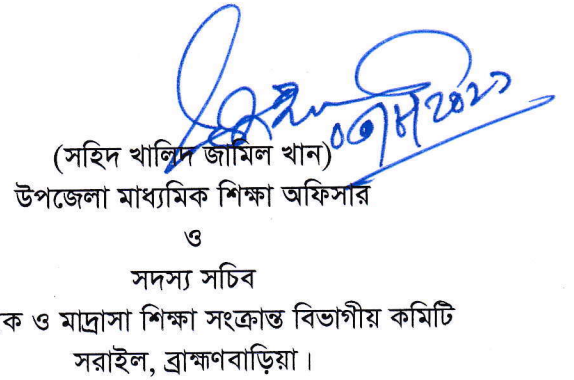 (সহিদ খালিদ জামিল খান)
উপজেলা মাধ্যমিক শিক্ষা অফিসার
ও
সদস্য সচিব
ক ও মাদ্রাসা শিক্ষা সংক্রান্ত বিভাগীয় কমিটি
সরাইল, ব্রাহ্মণবাড়িয়া।